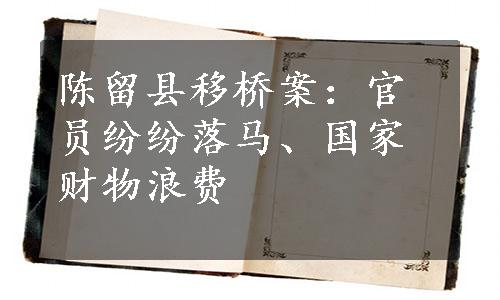 陈留县移桥案：官
员纷纷落马、国家
财物浪费